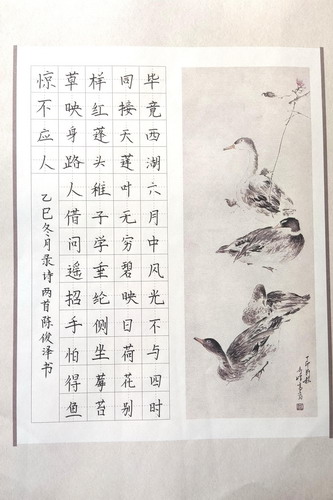 毕竟西湖六月中风光不与四时
同接天莲叶无穷碧映日荷花别
样红蓬头稚子学垂纶侧坐莓苔
草映身路人借问遥招手怕得鱼
惊不应人
乙巳冬月录诗两首陈俊泽书